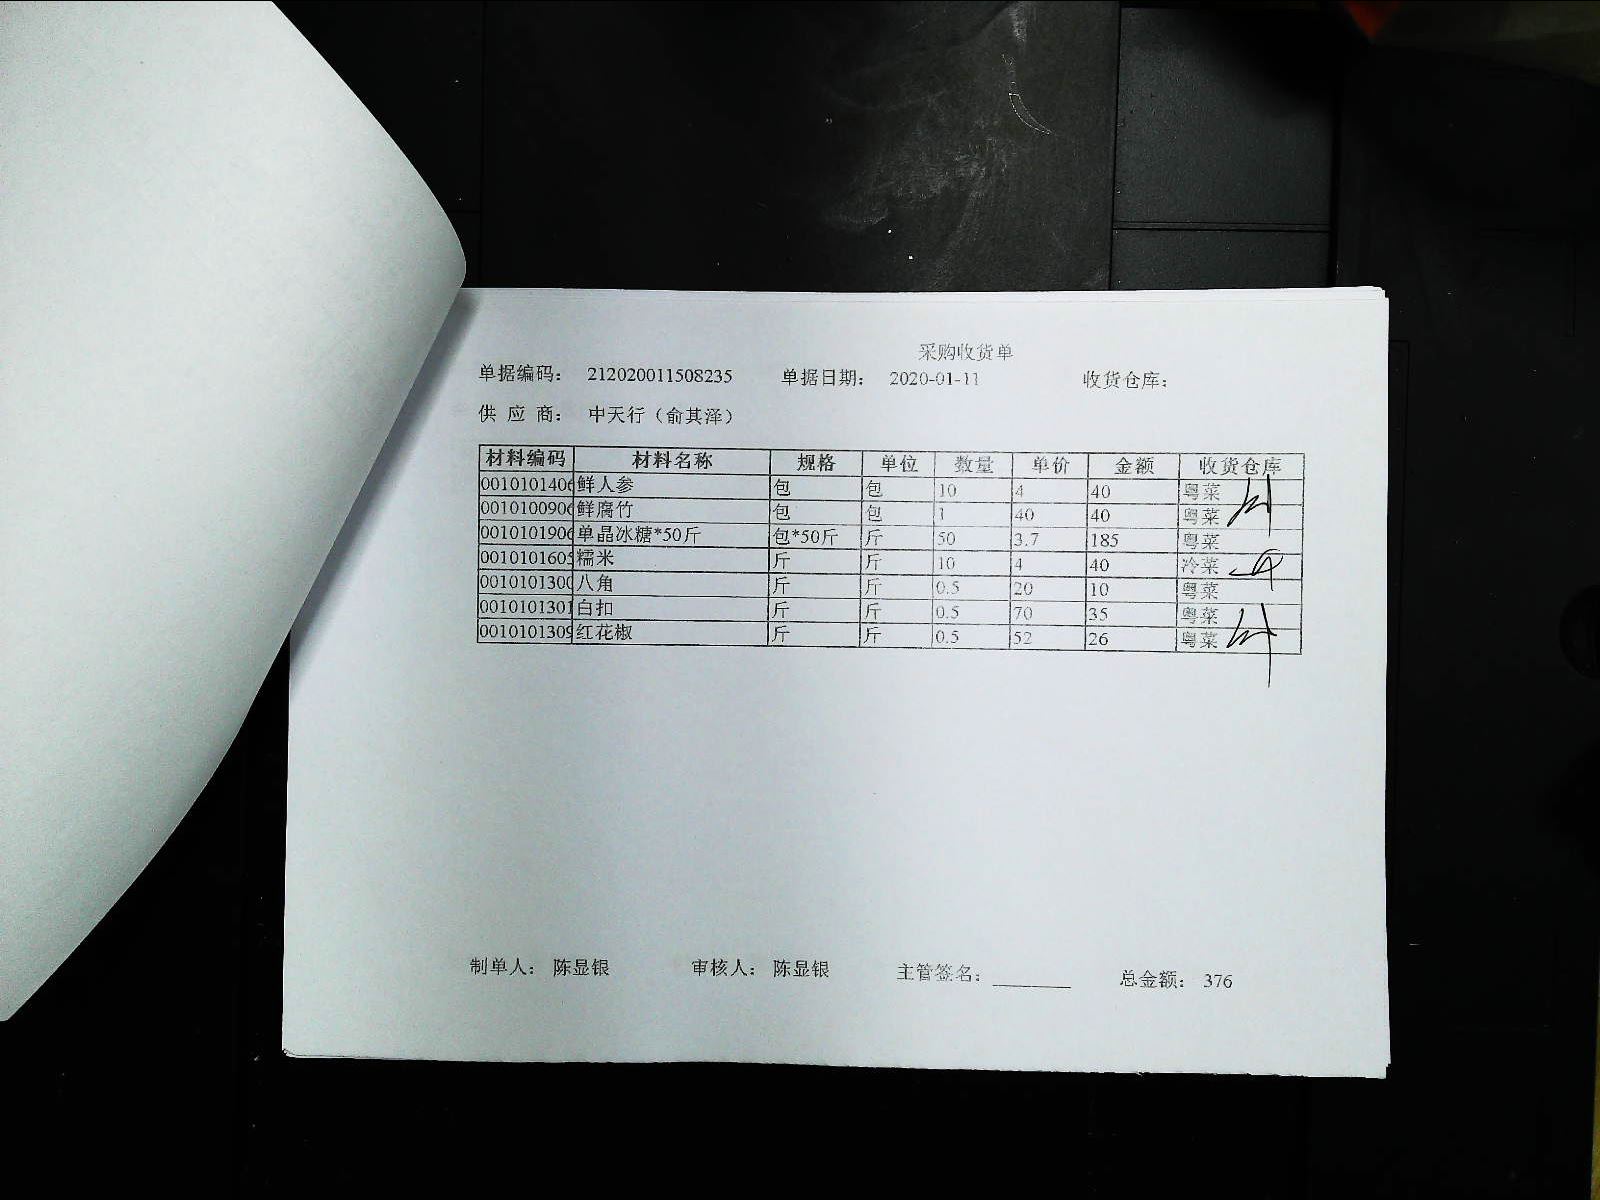 采购收货单
单据编码： 212020011508235 单据日期： 2020-01-11 收货仓库：
供 应 商： 中天行（俞其泽）
材料编码 材料名称 规格 单位 数量 单价 金额 收货仓库
0010101406 鲜人参 包 包 10 4 40 粤菜
0010100906 鲜腐竹 包 包 1 40 40 粤菜
0010101906 单晶冰糖*50斤 包*50斤 斤 50 3.7 185 粤菜
0010101605 糯米 斤 斤 10 4 40 冷菜
0010101300 八角 斤 斤 0.5 20 10 粤菜
0010101301 白扣 斤 斤 0.5 70 35 粤菜
0010101309 红花椒 斤 斤 0.5 52 26 粤菜
制单人： 陈显银 审核人： 陈显银 主管签名： 总金额： 376